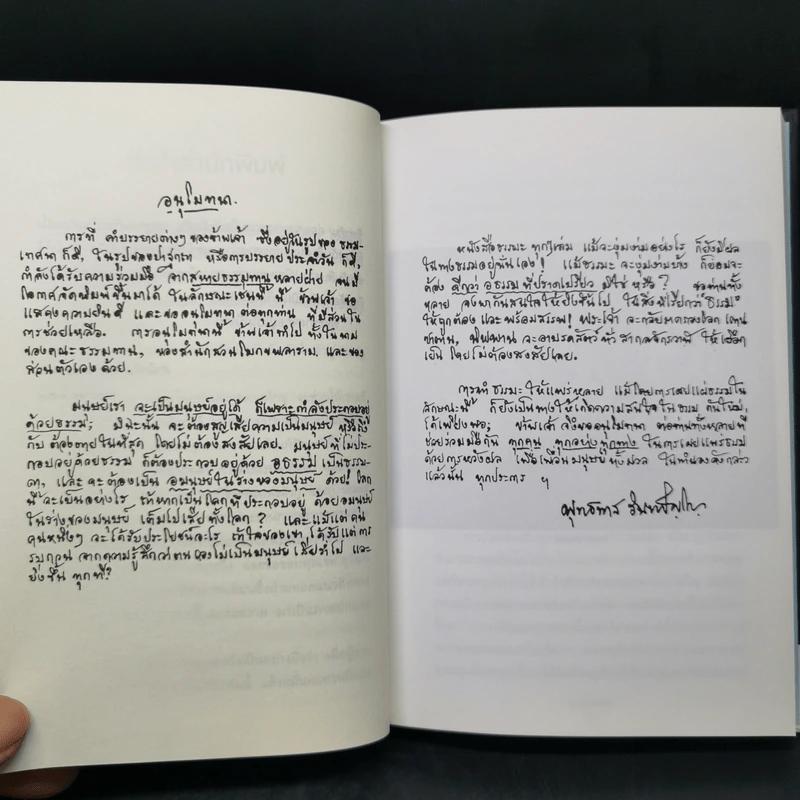 อนุโมทนา.
การที่ คำบรรยายต่างๆ ของข้าพเจ้า ซึ่งอยู่ในรูปของ ธรรม-
เทศนา ก็ดี, ในรูปของปาฐกถา หรือการบรรยาย ประจำวัน ก็ดี,
กำลังได้รับความร่วมมือ จากสหายธรรมทาน หลายฝ่าย จนมี
โอกาสจัดพิมพ์ขึ้นมาได้ ในลักษณะเช่นนี้ นี้ ข้าพเจ้า ขอ
แสดงความยินดี และขออนุโมทนา ต่อทุกท่าน ที่มีส่วนใน
การช่วยเหลือ. การอนุโมทนานี้ ข้าพเจ้าทำไป ทั้งในนาม
ของคณะธรรมทาน, ของสำนักสวนโมกขพลาราม, และของ
ส่วนตัวเองด้วย.
มนุษย์เรา จะเป็นมนุษย์อยู่ได้ ก็เพราะกำลังประกอบอยู่
ด้วยธรรม; มิฉะนั้น จะต้องสูญเสียความเป็นมนุษย์ หรือถึง
กับ ต้องตายในที่สุด โดยไม่ต้องสงสัยเลย. มนุษย์ที่ไม่ประ-
กอบอยู่ด้วยธรรม ก็ต้องประกอบอยู่ด้วย อธรรม เป็นธรรม-
ดา, และ จะต้องเป็น อมนุษย์ในร่างของมนุษย์ ด้วย! โลก
นี้จะเป็นอย่างไร ถ้าหากเป็นโลกที่ประกอบอยู่ ด้วยอมนุษย์
ในร่างของมนุษย์ เต็มไปเสียทั้งโลก? และแม้แต่ คน
คนหนึ่งๆ จะได้รับประโยชน์อะไร ถ้าใจของเขา ได้รับแต่การ
รบกวน จากความรู้สึกว่าตน หลงไม่เป็นมนุษย์ เสียทำไป และ
ยิ่งขึ้น ทุกที?
หนังสือธรรมะ ทุกๆเล่ม แม้จะงุ่มง่ามอย่างไร ก็ยังมีผล
ในทางธรรมอยู่นั่นเอง! แม้ธรรมะ จะงุ่มง่ามบ้าง ก็ย่อมจะ
ต้อง ดีกว่า อธรรม ที่ปราดเปรียว มิใช่ หรือ? ขอท่านทั้ง
หลาย จงพากันสนใจให้ยิ่งขึ้นไป ในสิ่งที่เรียกว่า "ธรรม"
ให้ถูกต้อง และพร้อมสรรพ! พระเจ้า จะกลับมาครองโลก แทน
ซาตาน, นิพพาน จะอาบรดสัตว์ ทั่ว สากลจักรวาฬ ให้เยือก
เย็น โดยไม่ต้องสงสัยเลย.
การทำ ธรรมะ ให้แพร่หลาย แม้โดยการเผยแผ่ธรรมใน
ลักษณะนี้ ก็ยังเป็นทางให้เกิดความสนใจ ในธรรม กันใหม่,
ได้เพียงพอ; ข้าพเจ้า จึงขออนุโมทนา ต่อท่านทั้งหลายที่
ช่วยร่วมมือกัน ทุกคน ทุกอย่าง ทุกทาง ในการเผยแพร่ธรรม
ด้วยการหวังผล เพื่อเพื่อนมนุษย์ ทั้งมวล ในทำนองดังกล่าว
แล้วนั้น ทุกประการ ฯ
พุทธทาส อินทปัญโญ.